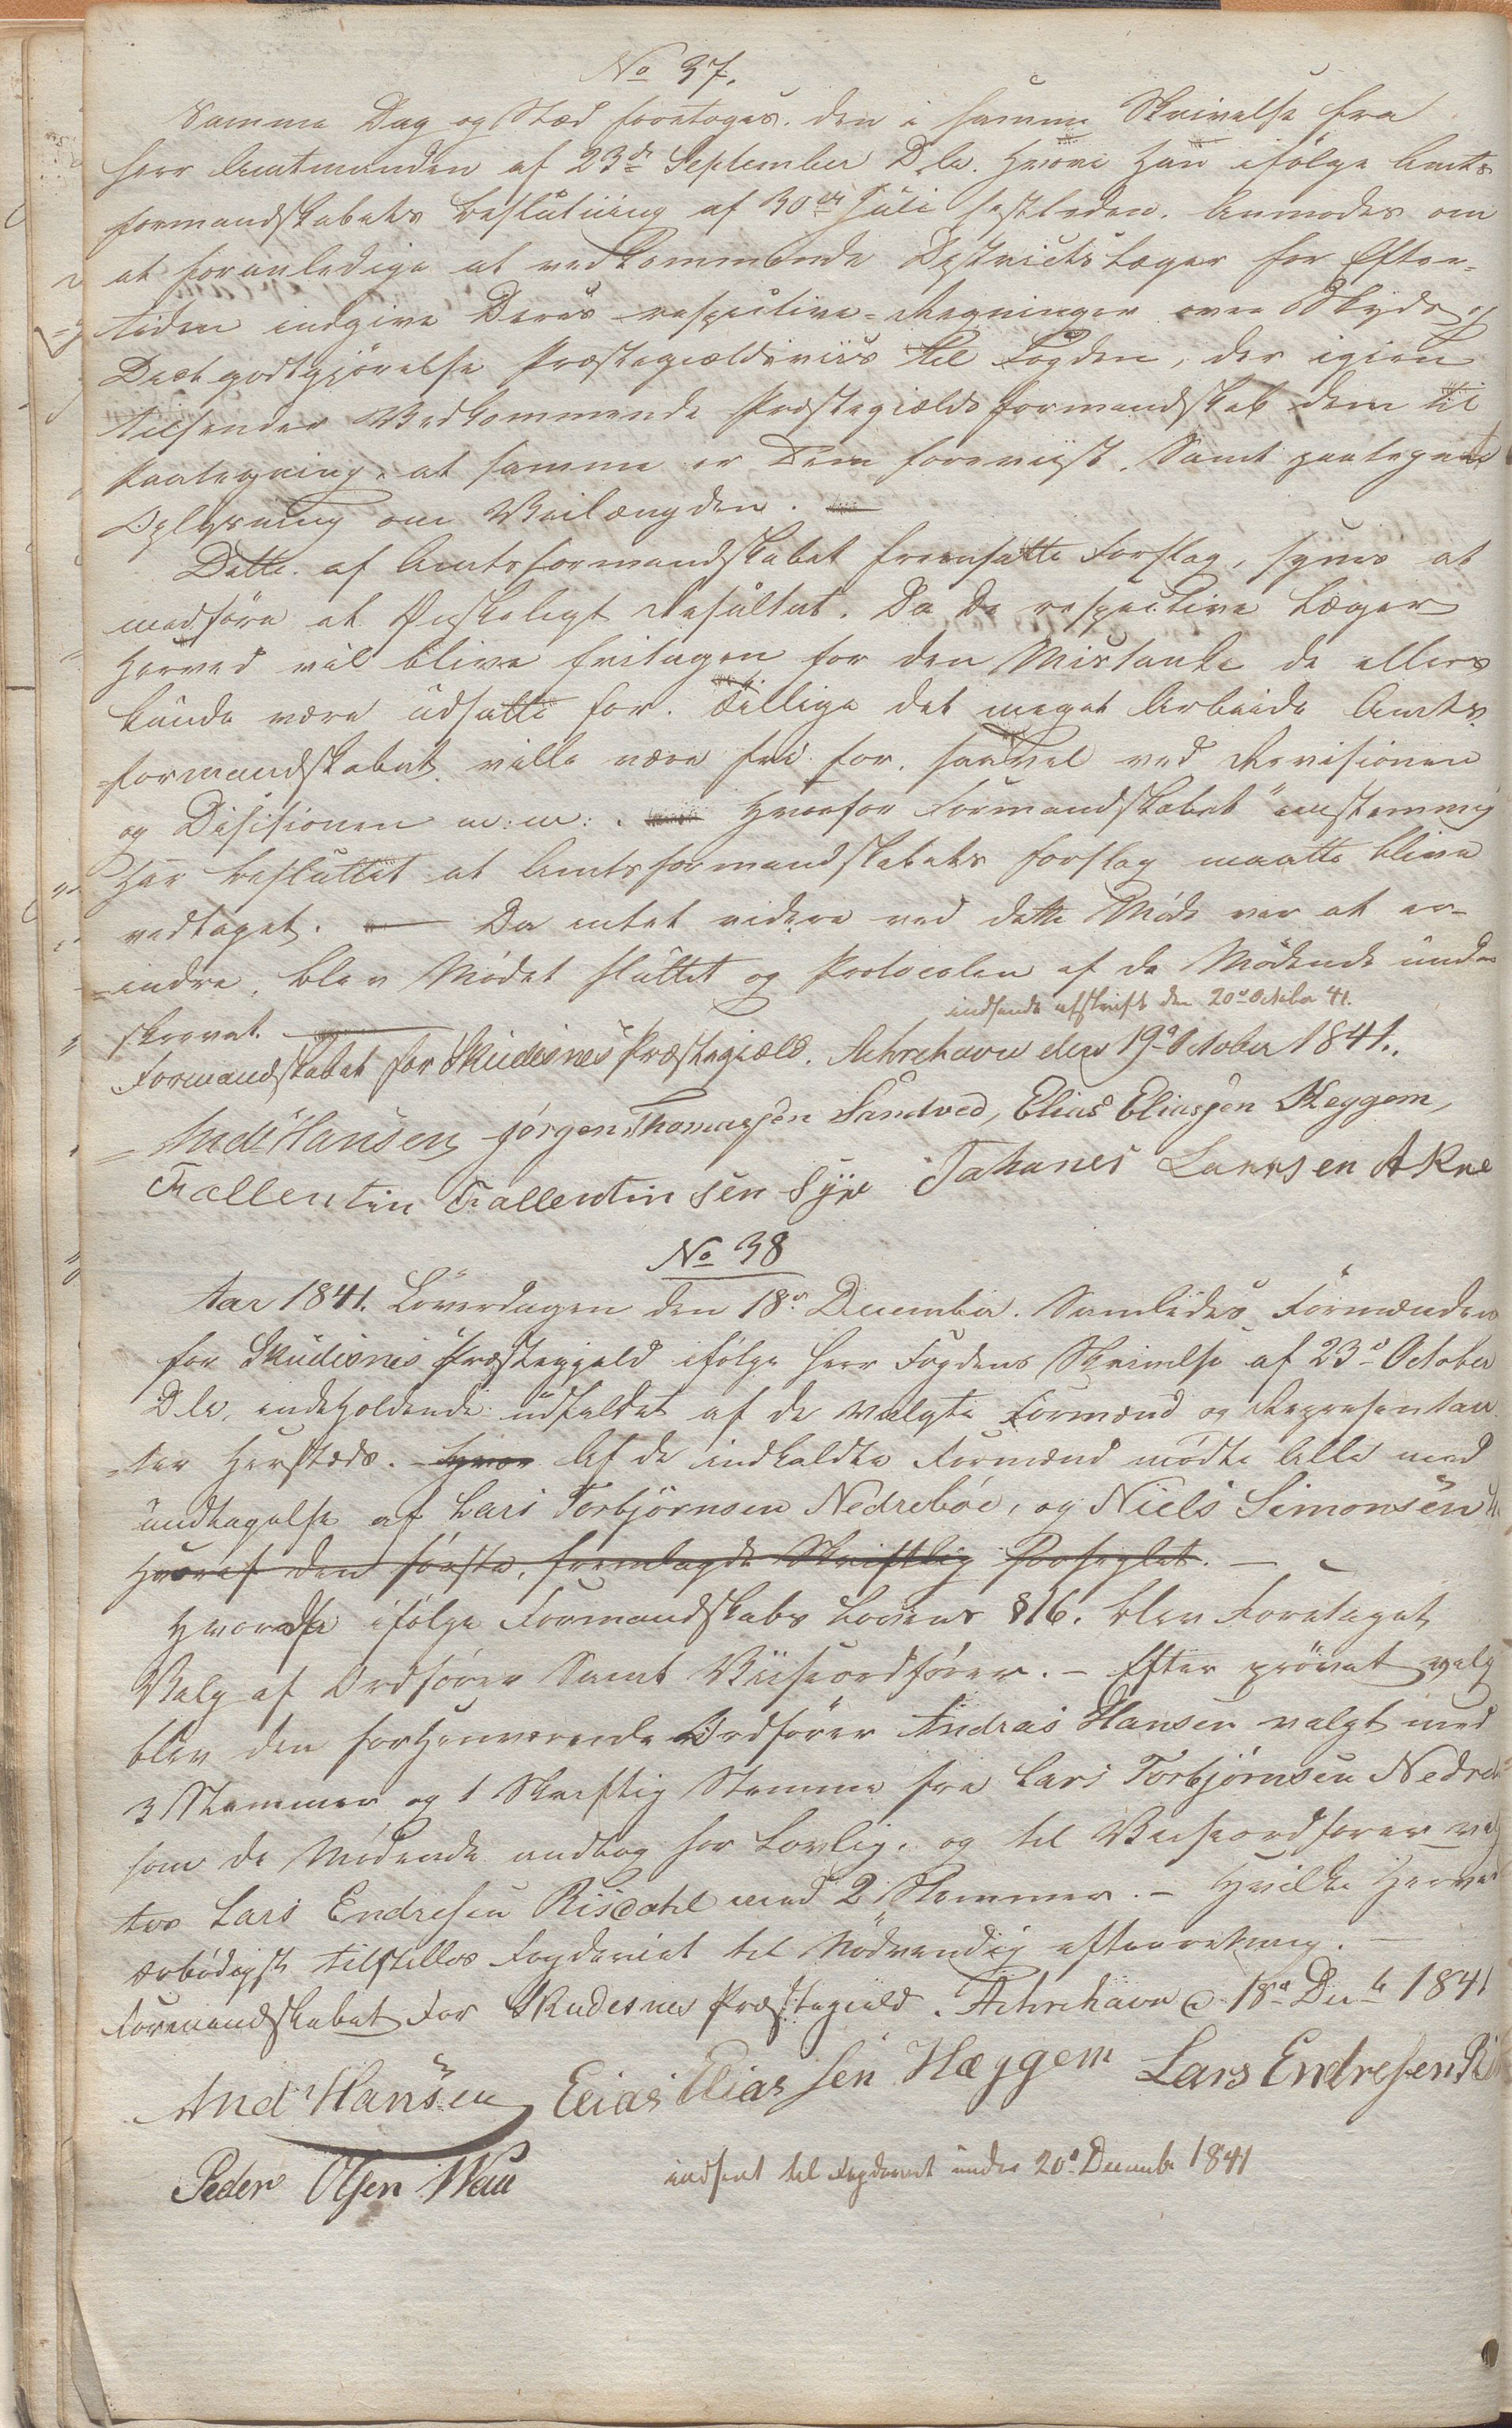 No 37.
Samme Dag og Stæd foretoges den i samme Skrivelse fra
Herr Amtmanden af 23de September D.A. hvori han ifölge Amts
formandskabets beslutning af 30te Juli sestleden. Anmodes om
at foranledige at vedkommende Districtslæger for Efter-
tiden indgive Deres respective Regninger over Skyds og
Diæt godtgjörelse Præstegieldsviis til Fogden, der igien
tilsender Vedkommende Præstegields formandskab dem til
Paategning, at samme er Dem foreviist. Samt paategne
Oplysning om Veilængden.
Dette af Amtsformandskabet fremsatte Forslag, synes at
medföre et Önskeligt Resultat. Da de respective Læger
herved vil blive fritagen for den Mistanke de ellers
kunde være udsatte for. Tillige det meget Arbeide Amts
formandskabet ville være fri for saavel ved Revisionen
og Disisionen m:m: . Hvorfor Formandskabet enstemmig
har besluttet at Amtsformandskabets forslag maatte blive
vedtaget. — Da intet videre ved dette Möde var at er-
indre, blev Mödet sluttet og Protocolen af de Mödende under
skrevet.
indsendt afskrift den 20de October 41.
Formandskabet for Skudesnes Præstegield. Ahrehavn den 19de October 1841.
Andr Hansen Jörgen Thomassen Sandved, Elias Eliassen Heggem,
Fallentin Fallentinsen Syre Johanes Larssen Akre
No 38
Aar 1841. Löverdagen den 18de December. Samledes Formænden
for Skudesnes Præstegjeld ifölge Herr Fogdens Skrivelse af 23de October
D.A. indeholdende udfaldet af de valgte Formænd og Representan
ter Herstæds. hvor Af de indkaldte Formænd mödte Alle med
undtagelse af Lars Torbjörnsen Nedreböe, og Niels Simonsen
Hvoraf den förste, fremlagde Skriftlig Forseglet. —
Hvorefter ifölge Formandskabs Lovens § 16. blev Foretaget
Valg af Ordförer Samt Viiseordförer. — Efter prövet valg
blev den forhenværende Ordförer Andreas Hansen valgt med
3 Stemmer og 1 Skriftlig Stemme fra Lars Torbjörnsen Nedreb
som de Mödende andtog for Lovlig. og til Viiseordförer val
tes Lars Endresen Risdahl med 2 Stemmer. — Hvilke Herved
ærbödigst tilstilles Fogderiet til Nödvendig efterretning.
Formandskabet For Skudesnes Præstegield. Aahrehavn d. 18de Decb 1841
Andr Hansen Elias Eliassen Hæggem Lars Endresen Ri
Peder Olsen Wau indsent til Fogderiet under 20de Decembr 1841